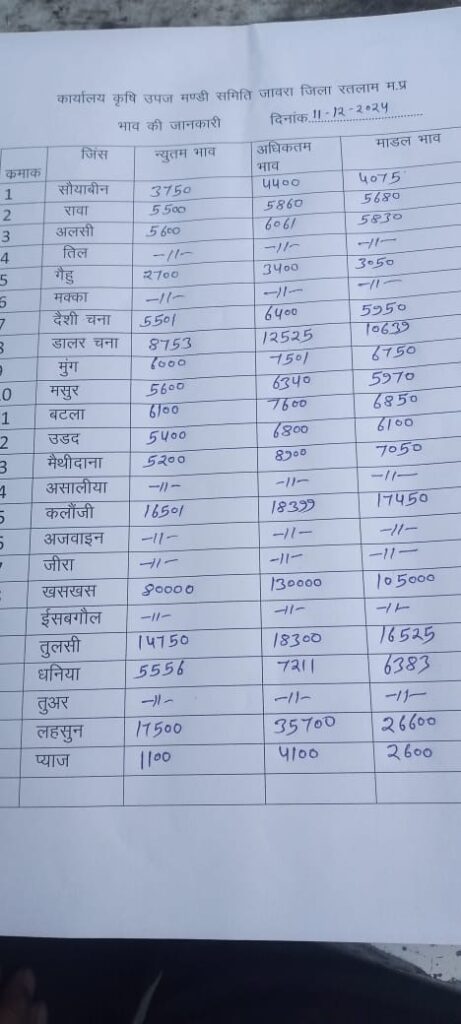 कार्यालय कृषि उपज मण्डी समिति जावरा जिला रतलाम म.प्र
भाव की जानकारी दिनांक 11-12-2024
कमाक जिंस न्युतम भाव अधिकतम भाव माडल भाव
1 सौयाबीन 3750 4400 4075
2 रावा 5500 5860 5680
3 अलसी 5600 6061 5830
4 तिल -11- -11- -11-
5 गैहु 2700 3400 3050
6 मक्का -11- -11- -11-
7 दैशी चना 5501 6400 5950
8 डालर चना 8753 12525 10639
मुंग 6000 7501 6750
0 मसुर 5600 6340 5970
1 बटला 6100 7600 6850
2 उडद 5400 6800 6100
3 मैथीदाना 5200 8900 7050
4 असालीया -11- -11- -11-
5 कलौंजी 16501 18399 17450
6 अजवाइन -11- -11- -11-
जीरा -11- -11- -11-
खसखस 80000 130000 105000
ईसबगौल -11- -11- -11-
तुलसी 14750 18300 16525
धनिया 5556 7211 6383
तुअर -11- -11- -11-
लहसुन 17500 35700 26600
प्याज 1100 4100 2600